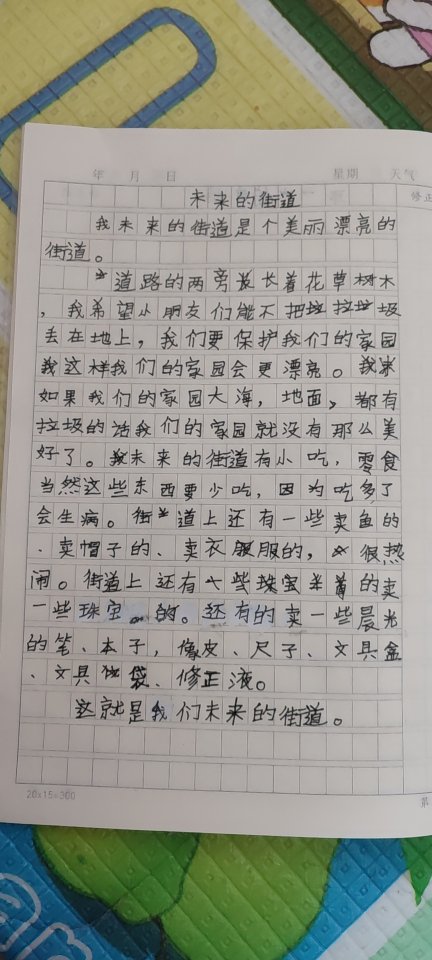 年 月 日 星期 天气
修正
未来的街道
我未来的街道是个美丽漂亮的
街道。
道路的两旁长着花草树木
，我希望小朋友们能不把垃圾
丢在地上，我们要保护我们的家园
我这样我们的家园会更漂亮。
如果我们的家园大海，地面，都有
垃圾的话我们的家园就没有那么美
好了。未来的街道有小吃，零食
当然这些东西要少吃，因为吃多了
会生病。街道上还有一些卖鱼的
、卖帽子的、卖衣服的，很热
闹。街道上还有一些珠宝的卖
一些珠宝的。还有的卖一些晨光
的笔、本子，像皮、尺子、文具盒
、文具袋、修正液。
这就是我们未来的街道。
20×15=300
第